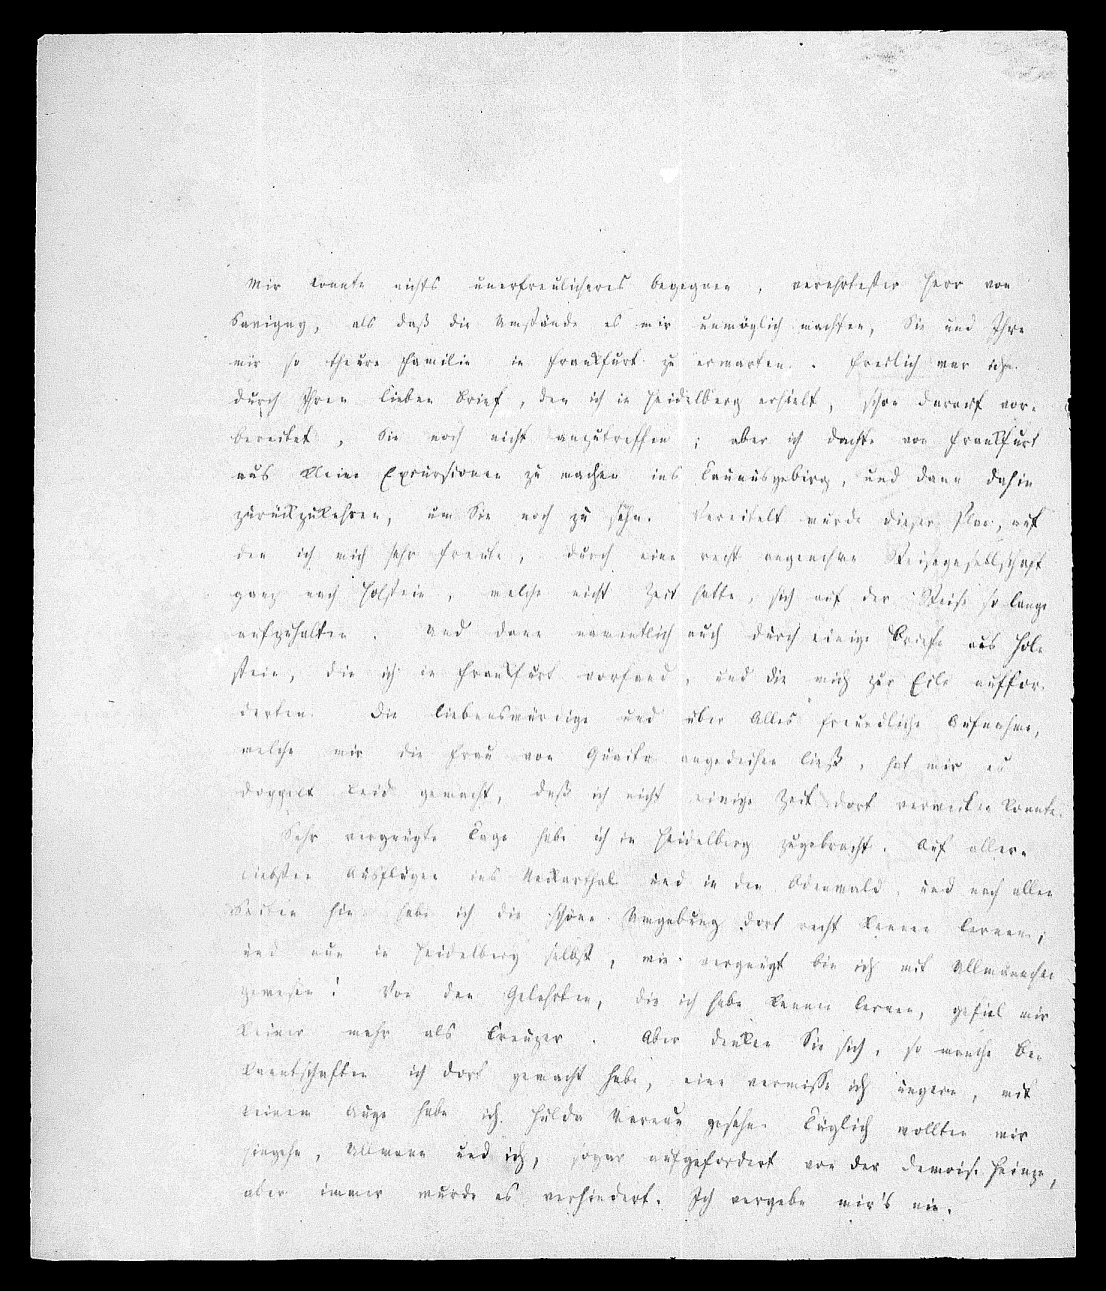 Mir konnte nichts unerfreulicheres begegnen, verehrtester Herr von
Savigny, als daß die Umstände es mir unmöglich machten, Sie und Ihre
mir so theure Familie in Frankfurt zu erwarten. Freilich war ich
durch Ihren lieben Brief, den ich in Heidelberg erhielt, schon darauf vor-
bereitet, Sie noch nicht anzutreffen; aber ich dachte von Frankfurt
aus kleine Excursionen zu machen ins Taunusgebirg, und dann dahin
zurückzukehren, um Sie noch zu sehn. Vereitelt wurde dieser Plan, auf
den ich mich sehr freute, durch eine recht angenehme Reisegesellschaft
ganz nach Holstein, welche nicht Zeit hatte, sich auf der Reise so lange
aufzuhalten. Und dann namentlich auch durch einige Briefe aus Hol-
stein, die ich in Frankfurt vorfand, und die mich zur Eile auffor-
derten. Die liebenswürdige und über Alles freundliche Aufnahme,
welche mir die Frau von Guaita angedeihen ließ, hat mir es
doppelt Leid gemacht, daß ich nicht einige Zeit dort verweilen konnte.
Sehr vergnügte Tage habe ich in Heidelberg zugebracht. Auf aller-
liebsten Ausflügen ins Neckarthal und in den Odenwald, und nach allen
Seiten hin habe ich die schöne Umgebung dort recht kennen lernen;
und nun in Heidelberg selbst, wie vergnügt bin ich mit Ullmännchen
gewesen! Von den Gelehrten, die ich habe kennen lernen, gefiel mir
keiner mehr als Creuzer. Aber denken Sie sich, so manche Be-
kanntschaften ich dort gemacht habe, eine vermisse ich ungern, mit
keinem Auge habe ich Hulda gesehn. Täglich wollten wir
hingehn, Ullmann und ich, sogar aufgefordert von der demois.
aber immer wurde es verhindert. Ich vergebe mir's nie.